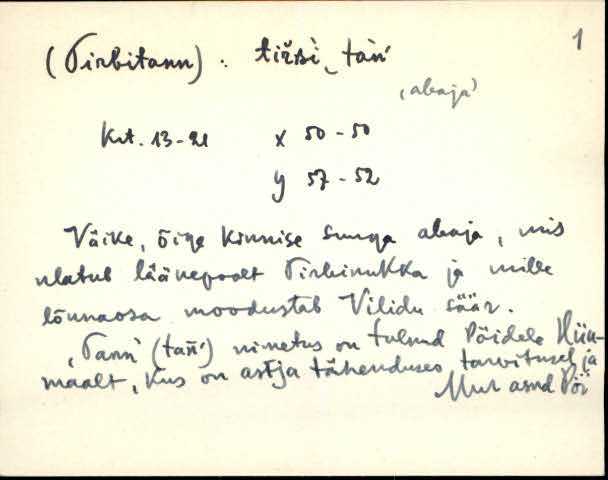 1
(Tirbitann) : tiŕʙì‿tàń
(abaja)
Krt. 13-21 x 50-50
y 57-52
Väike, õige kinnise suuga abaja, mis
ulatub läänepoolt Tirbinukka ja mille
lõunaosa moodustab Vilidu säär.
„Tann” (tań) nimetus on tulnud Pöidele Hiiu-
maalt, kus on astja tähenduses tarvitusel ja
Mur asnd Pöi